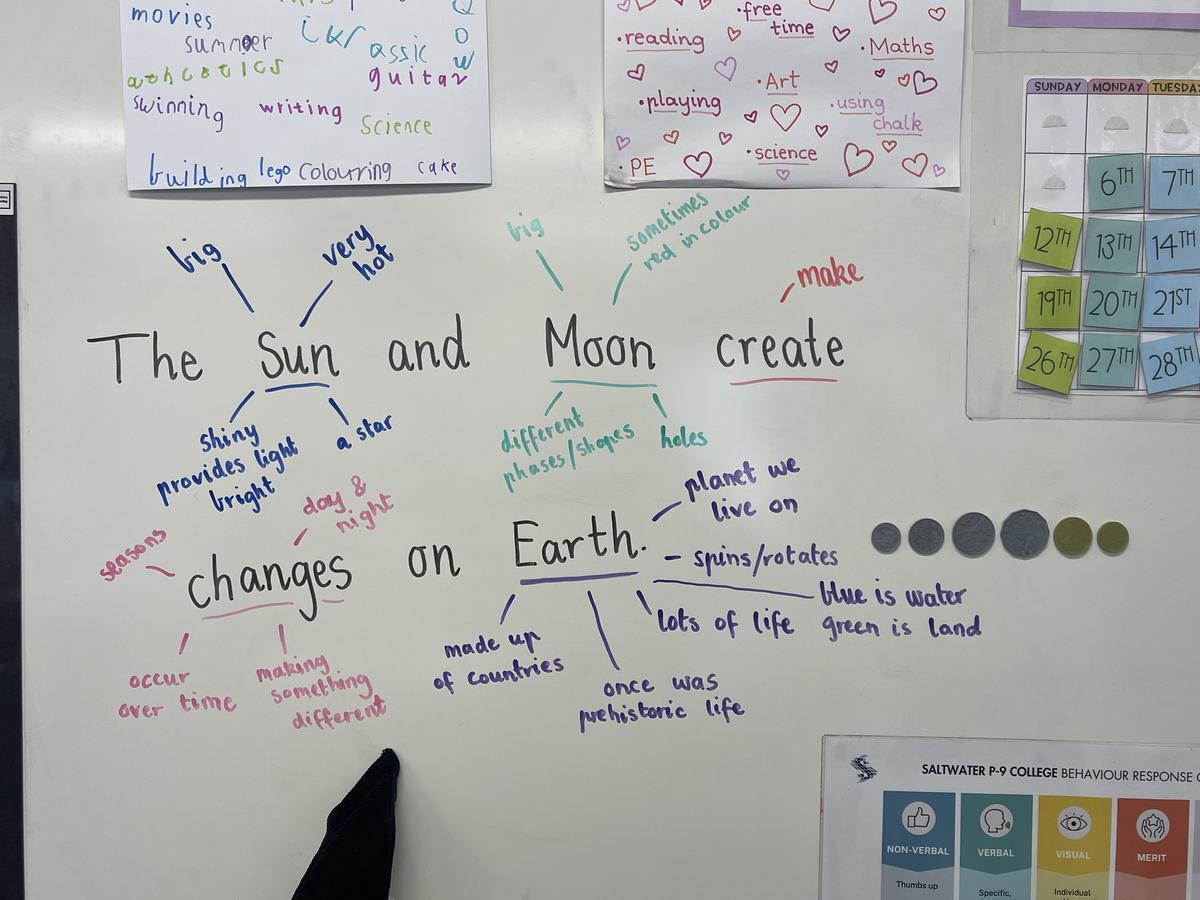 movies
summer
athcetics
assic
guitar
swinning
writing
Science
building lego Colourring cake
• free
time
• reading
• Maths
• Art
• playing
• using
chalk
• PE
• science
SUNDAY MONDAY TUESDAY
6TH 7TH
12TH 13TH 14TH
19TH 20TH 21ST
26TH 27TH 28TH
big
very
hot
big
sometimes
red in colour
make
The Sun and Moon create
shiny
provides light
bright
a star
different
phases/shapes
holes
seasons
day &
night
planet we
live on
changes on Earth.
- spins/rotates
blue is water
green is land
lots of life
made up
of countries
once was
prehistoric life
occur
over time
making
something
different
SALTWATER P-9 COLLEGE BEHAVIOUR RESPONSE
NON-VERBAL VERBAL VISUAL MERIT
Thumbs up
Specific,
Individual